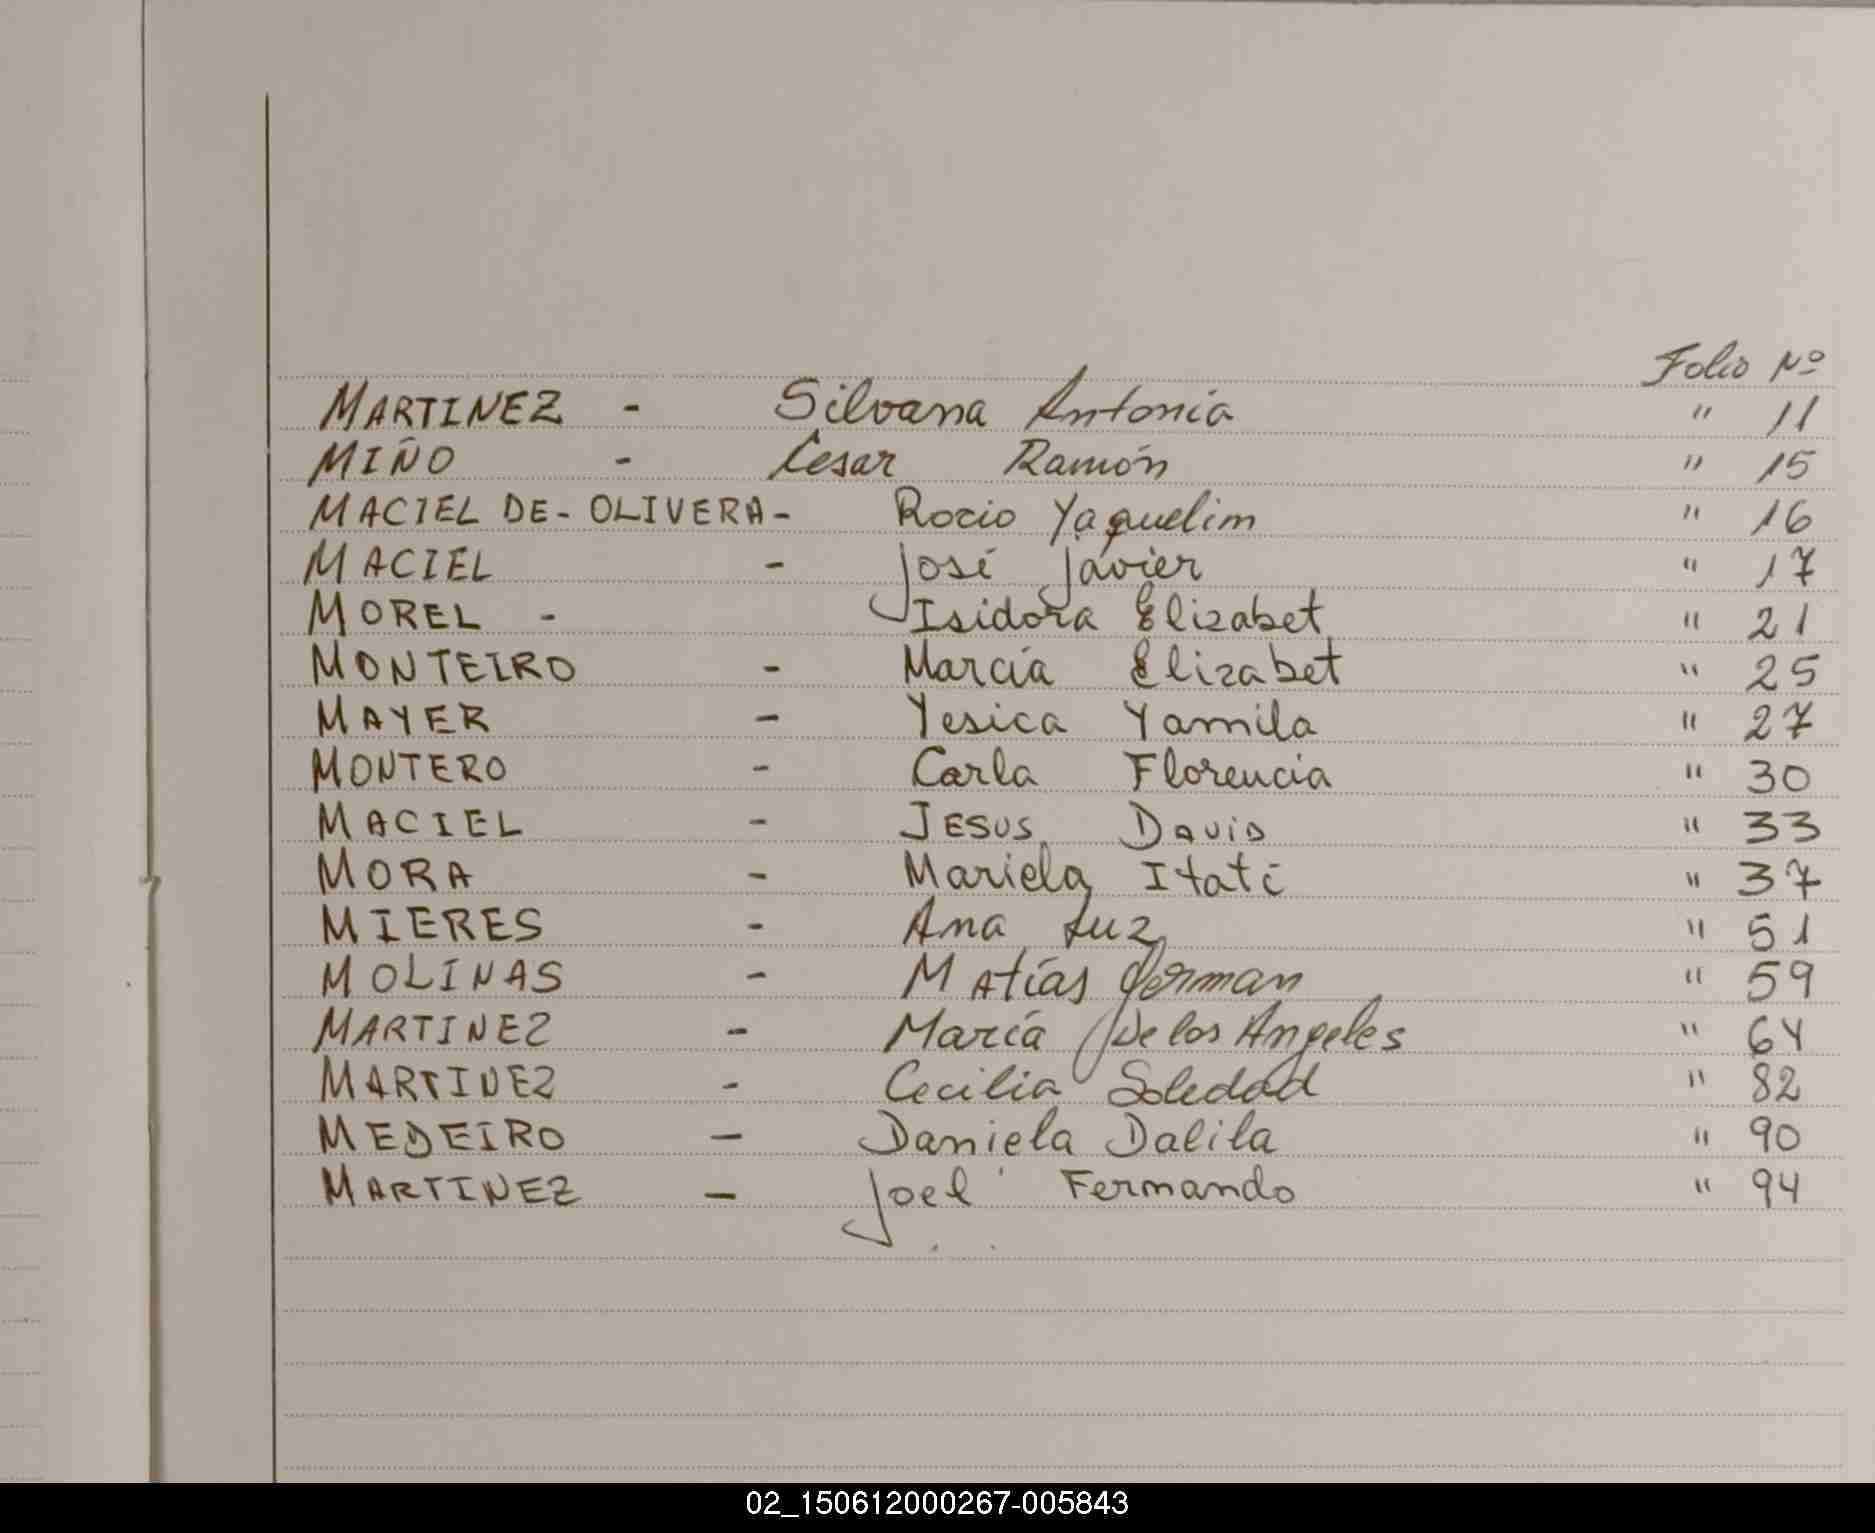 Folio Nº
MARTINEZ - Silvana Antonia " 11
MIÑO - Cesar Ramón " 15
MACIEL DE - OLIVERA - Rocio Yaquelim " 16
MACIEL - José Javier " 17
MOREL - Isidora Elizabet " 21
MONTEIRO - Marcia Elizabet " 25
MAYER - Yesica Yamila " 27
MONTERO - Carla Florencia " 30
MACIEL - JESUS DAVID " 33
MORA - Mariela Itati " 37
MIERES - Ana Luz " 51
MOLINAS - Matías German " 59
MARTINEZ - María De los Angeles " 64
MARTINEZ - Cecilia Soledad " 82
MEDEIRO - Daniela Dalila " 90
MARTINEZ - Joel Fernando " 94
02_150612000267-005843